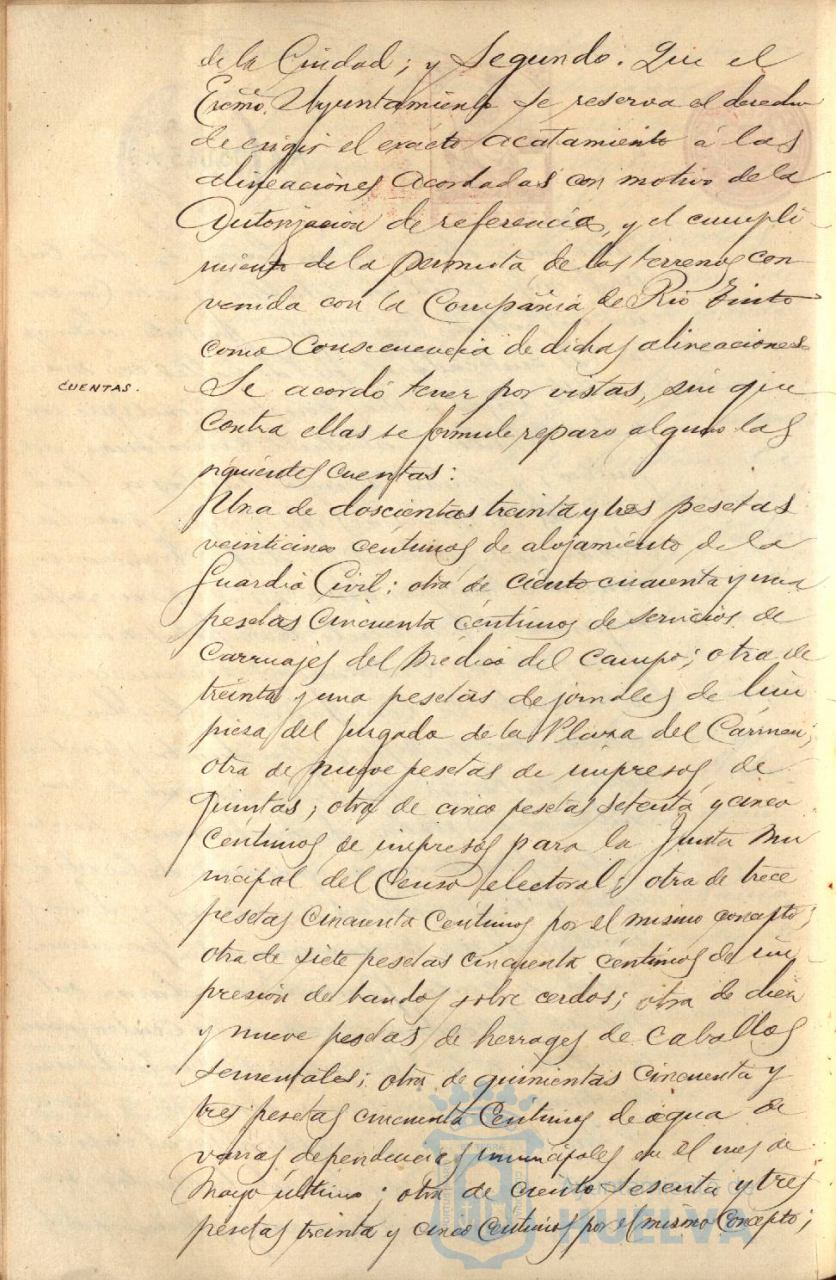 de la Ciudad; y Segundo. Que el
Excmo. Ayuntamiento se reserva el derecho
de exigir el exacto acatamiento á las
alineaciones acordadas con motivo de la
Autorización de referencia, y el cumpli-
miento de la permuta de los terrenos con-
venida con la Compañia de Rio Tinto
como consecuencia de dichas alineaciones
CUENTAS.
Se acordó tener por vistas, sin que
contra ellas se formule reparo alguno las
siguientes cuentas:
Una de doscientas treinta y tres pesetas
veinticinco centimos de alojamiento de la
Guardia Civil; otra de ciento cincuenta y una
pesetas cincuenta céntimos de servicios de
carruajes del Medico del Campo; otra de
treinta y una pesetas de jornales de lim-
pieza del Juzgado de la Plaza del Cármen;
otra de nueve pesetas de impresos de
Quintas; otra de cinco pesetas setenta y cinco
céntimos de impresos para la Junta Mu-
nicipal del Censo electoral; otra de trece
pesetas cincuenta céntimos por el mismo concepto;
otra de siete pesetas cincuenta céntimos de im-
presión de bandos sobre cerdos; otra de diez
y nueve pesetas de herrages de caballos
sementales; otra de quinientas cincuenta y
tres pesetas cincuenta céntimos de agua de
varias dependencias municipales en el mes de
Mayo último; otra de ciento sesenta y tres
pesetas treinta y cinco centimos por el mismo concepto;
HUELVA